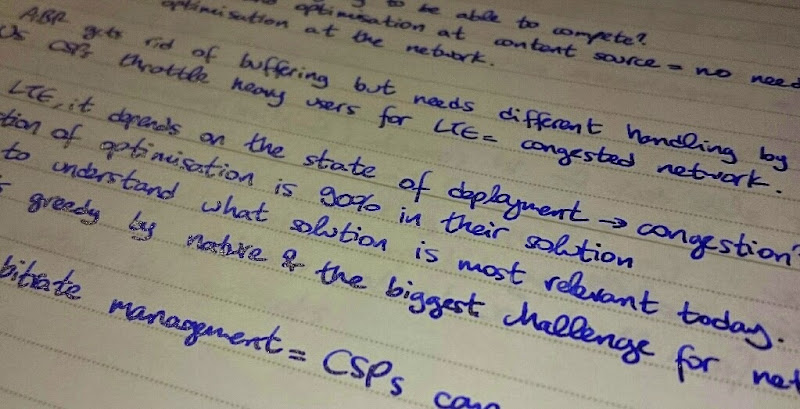 to be able to compete?
optimisation at content source = no need
optimisation at the network.
ABR gets rid of buffering but needs different handling by
US CSPs throttle heavy users for LTE = congested network.
LTE, it depends on the state of deployment → congestion?
tion of optimisation is 90% in their solution
to understand what solution is most relevant today.
s greedy by nature & the biggest challenge for net
bitrate management = CSPs can